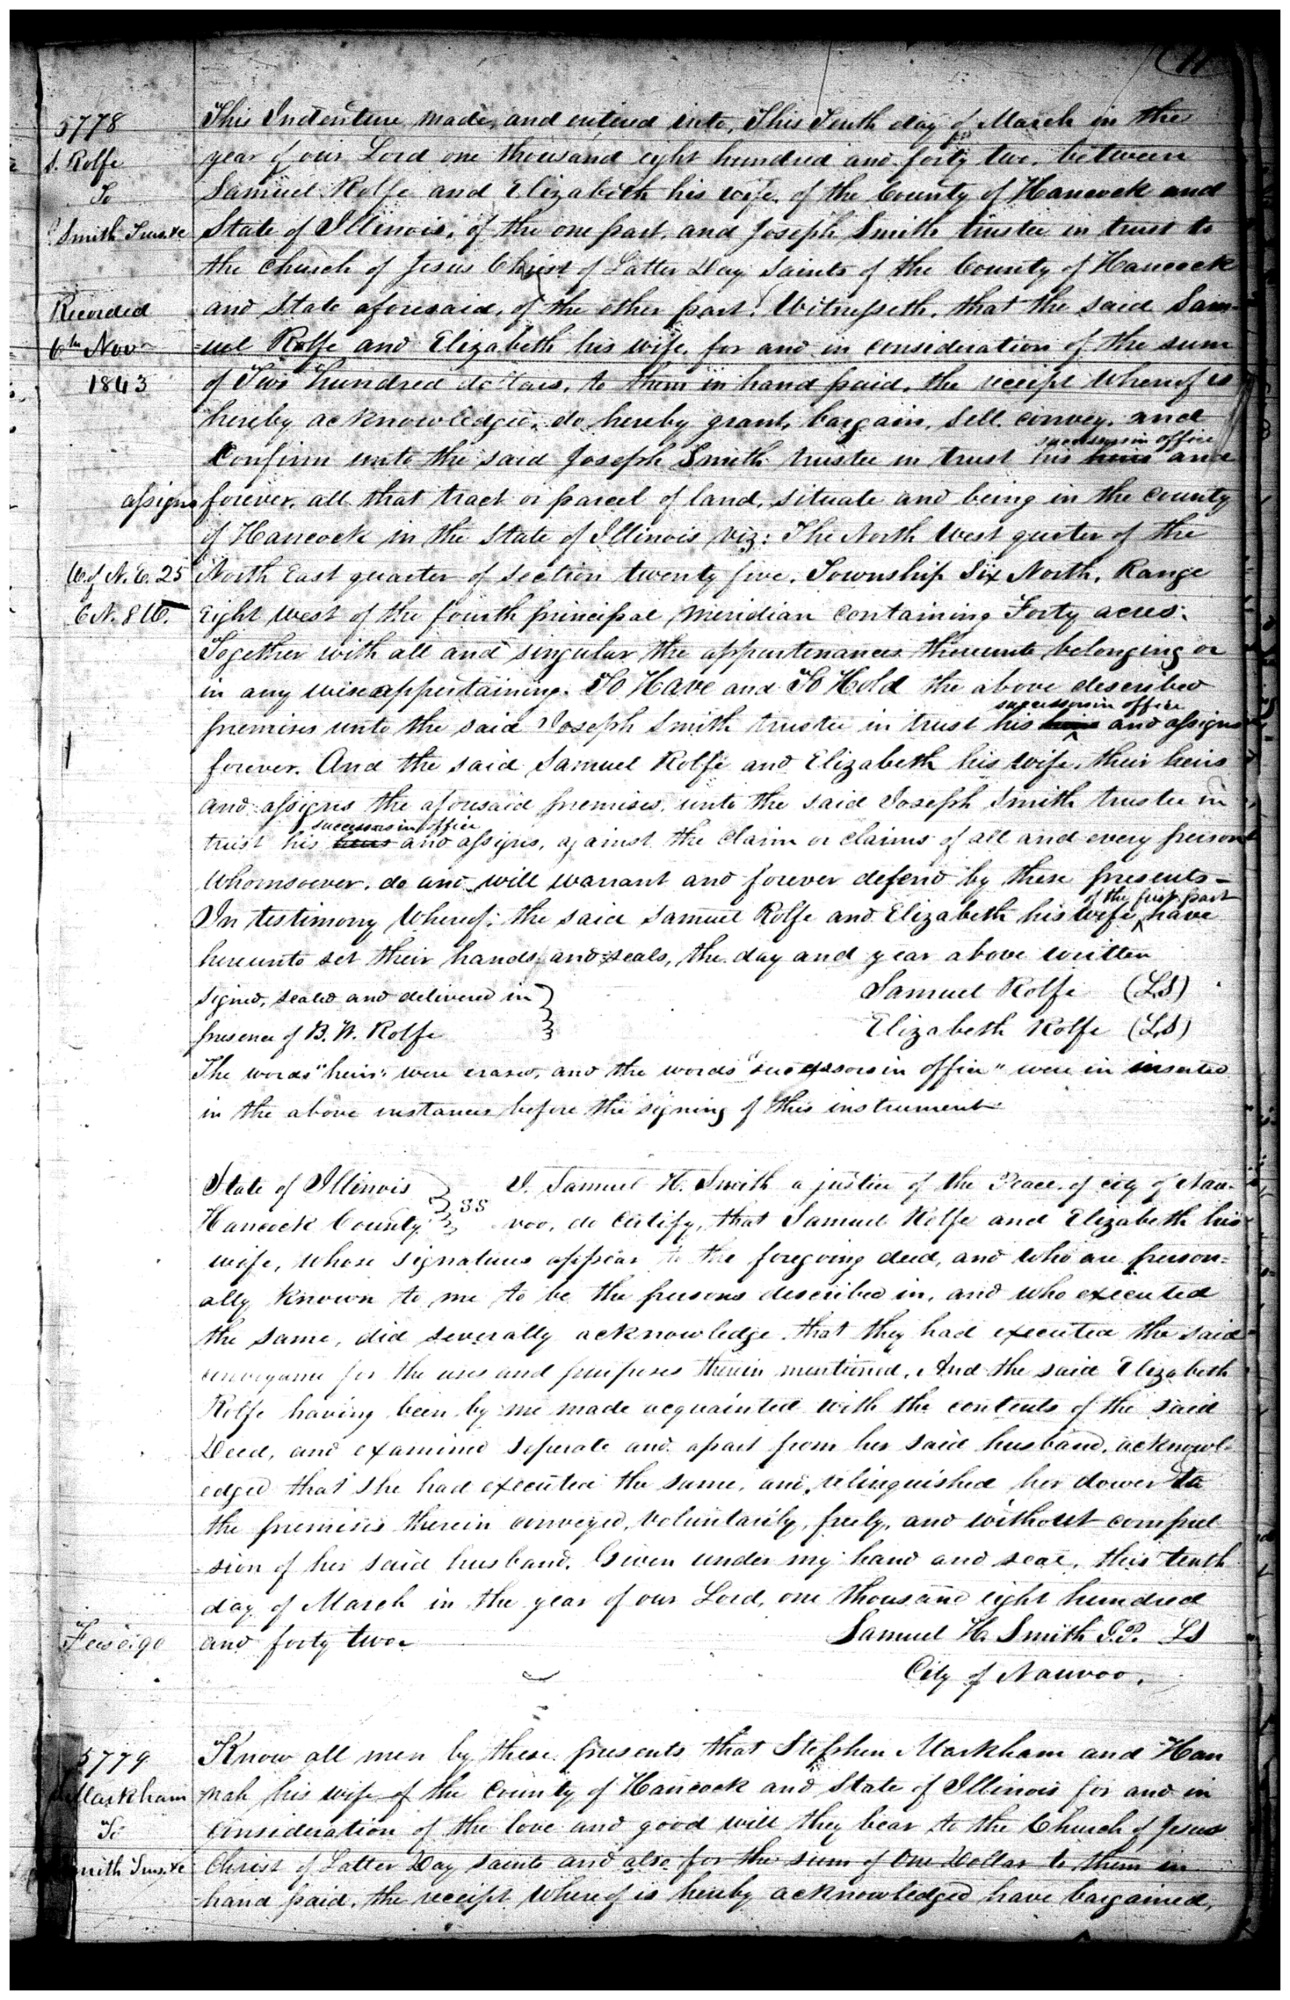 11
5778
S. Rolfe
To
Smith Trustee
Recorded
6th Nov
1843
This Indenture, made, and entered into, This Tenth day of March in the
year of our Lord one thousand eight hundred and forty two. between
Samuel Rolfe and Elizabeth his wife, of the County of Hancock and
State of Illinois, of the one part, and Joseph Smith trustee in trust to
the Church of Jesus Christ of Latter Day Saints of the County of Hancock
and State aforesaid, of the other part: Witnesseth, that the said Sam-
-uel Rolfe and Elizabeth his wife, for and in consideration of the sum
of Two hundred dollars, to them in hand paid, the receipt whereof is
hereby acknowledged, do hereby grant, bargain, sell. convey. and
successors in office
Confirm unto the said Joseph Smith trustee in trust his heirs and
assigns forever, all that tract or parcel of land, situate and being in the county
of Hancock in the State of Illinois viz: The North West quarter of the
W. of N. E. 25
6 N. 8 W.
North East quarter of section twenty five, Township Six North, Range
Eight west of the fourth principal meridian containing Forty acres.
Together with all and singular the appurtenances thereunto belonging or
in any wise appertaining. To Have and To Hold the above described
successors in office
premises unto the said Joseph Smith trustee in trust his heirs and assigns
forever. And the said Samuel Rolfe and Elizabeth his wife, their heirs
and assigns the aforesaid premises, unto the said Joseph Smith trustee in
successors in office
trust his heirs and assigns, against the claim or claims of all and every person
whomsoever, do and will warrant and forever defend by these presents-
of the first part
In testimony Whereof: the said Samuel Rolfe and Elizabeth his wife, have
hereunto set their hands, and seals, the day and year above written
Signed, sealed and delivered in
presence of B. W. Rolfe
Samuel Rolfe (LS)
Elizabeth Rolfe (LS)
The words "heirs" were erased, and the words "successors in office" were in inserted
in the above instances before the signing of this instrument
State of Illinois
Hancock County
SS
I. Samuel H. Smith a justice of the Peace, of city of Nau-
voo, do Certify, that Samuel Rolfe and Elizabeth his
wife, whose signatures appear to the foregoing deed, and who are person-
ally known to me to be the persons described in, and who executed
the same, did severally acknowledge, that they had executed the said
conveyance for the uses and purposes therein mentioned, And the said Elizabeth
Rolfe having been by me made acquainted with the contents of the said
Deed, and examined seperate and apart from her said husband, acknowl-
edged that she had executed the same, and relinquished her dower to
the premises therein conveyed, voluntarily, freely, and without compul
-sion of her said husband. Given under my hand and seal, this tenth
day of March in the year of our Lord, one thousand eight hundred
and forty two.
Samuel H. Smith J.P. LS
City of Nauvoo.
5779
Markham
To
Smith Trustee
Know all men by these presents that Stephen Markham and Han
nah his wife of the County of Hancock and State of Illinois for and in
Consideration of the love and good will they bear to the Church of Jesus
Christ of Latter Day Saints and also for the sum of One Dollar to them in
hand paid, the receipt Whereof is hereby acknowledged have bargained,